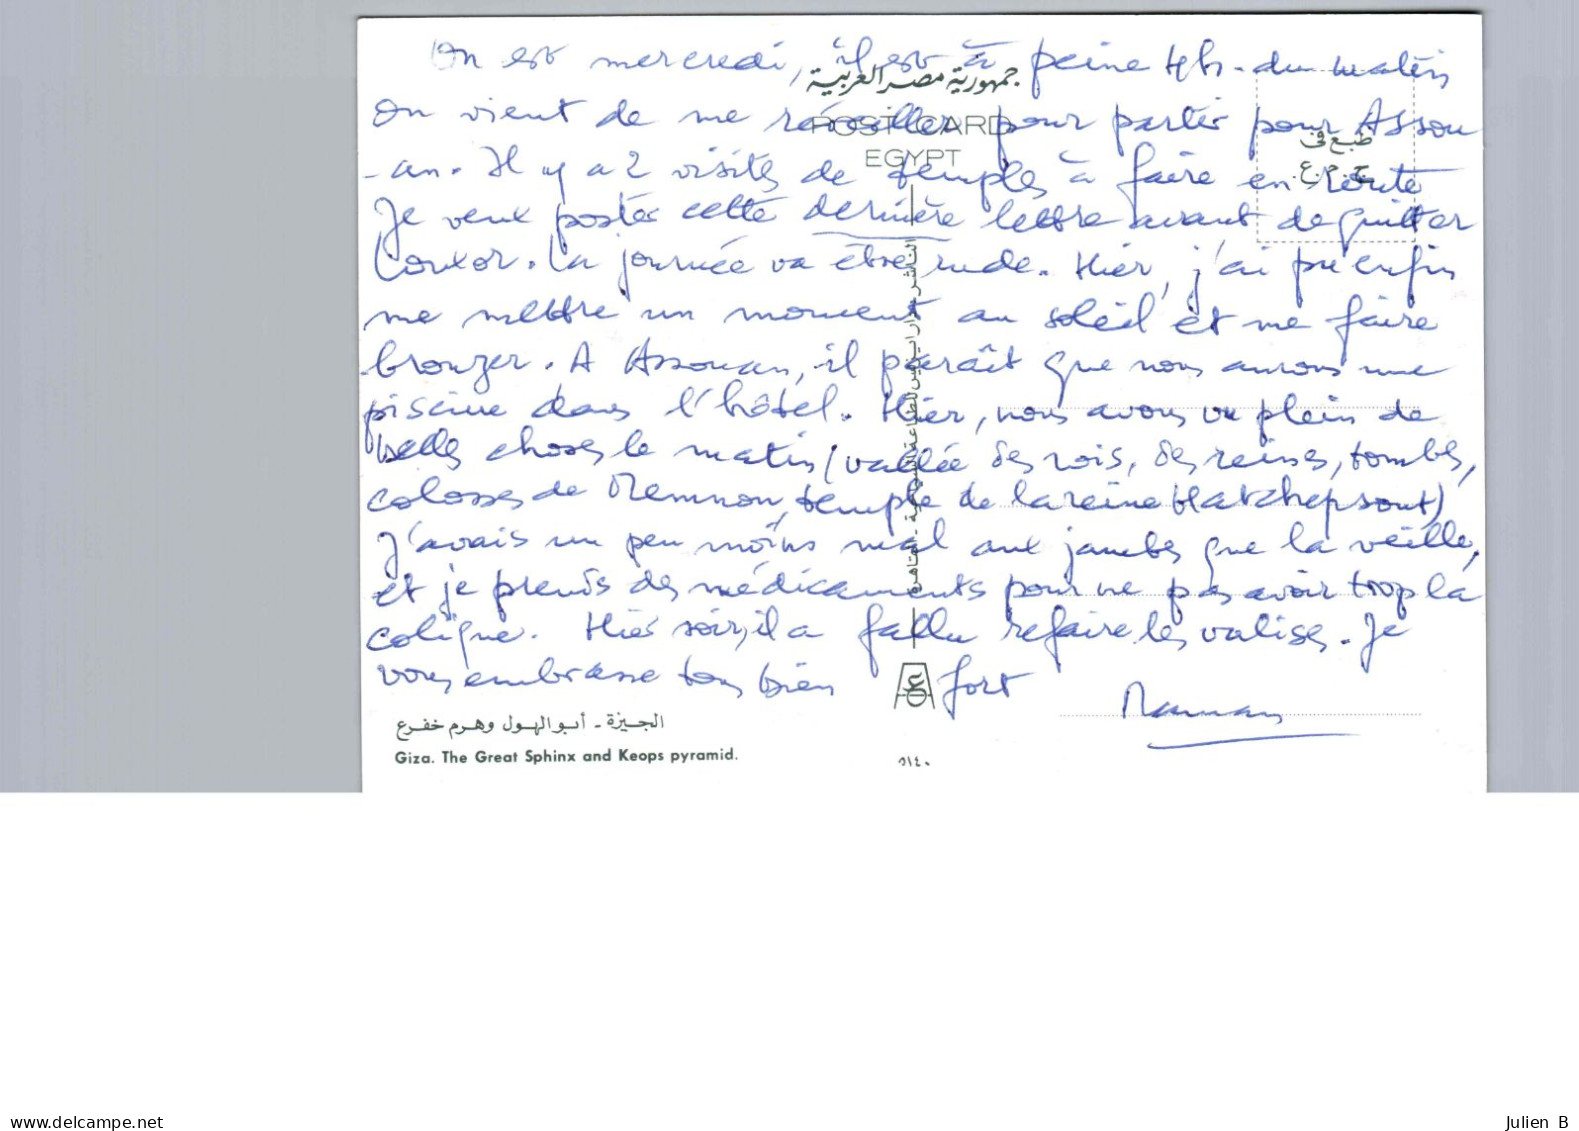 On est mercredi, il est à peine 4h. du matin
جمهورية مصر العربية
On vient de me réveiller pour partir pour Assou
POST CARD
طبع فى
-an. Il y a 2 visites de temples à faire en route
EGYPT
ج.م.ع.
Je veux poster cette dernière lettre avant de quitter
Louxor. La journée va être rude. Hier, j'ai pu enfin
me mettre un moment au soleil et me faire
bronzer. A Assouan, il paraît que nous aurons une
piscine dans l'hôtel. Hier, nous avons vu plein de
belles choses le matin (vallée des rois, des reines, tombes,
colosses de Memnon, temple de la reine Hatchepsout)
J'avais un peu moins mal aux jambes que la veille,
et je prends des médicaments pour ne pas avoir trop la
colique. Hier soir, il a fallu refaire les valises. Je
vous embrasse tous bien fort
Maman
الجيزة - أبو الهول وهرم خفرع
Giza. The Great Sphinx and Keops pyramid.
٥١٤٠
www.delcampe.net
Julien B